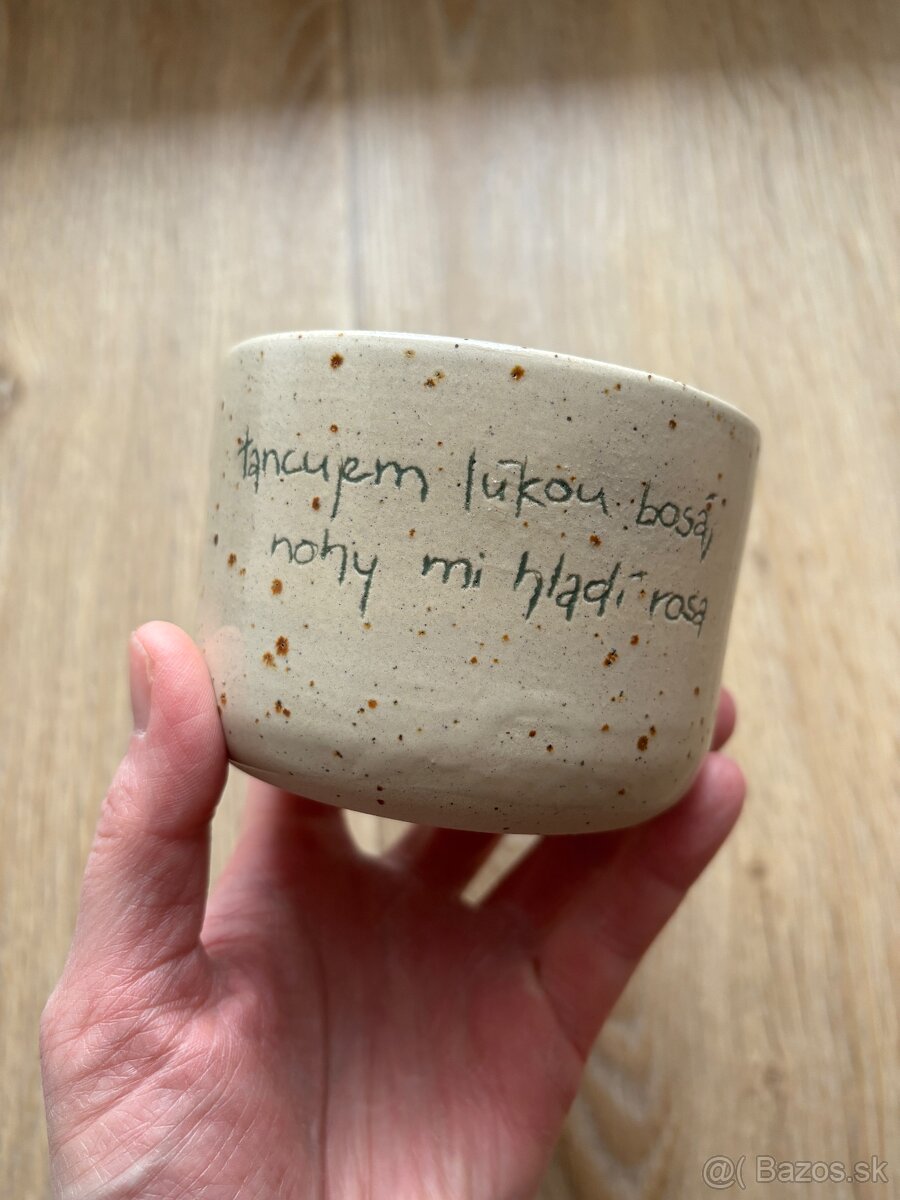 tancujem lúkou bosá,
nohy mi hladí rosa
@( Bazos.sk